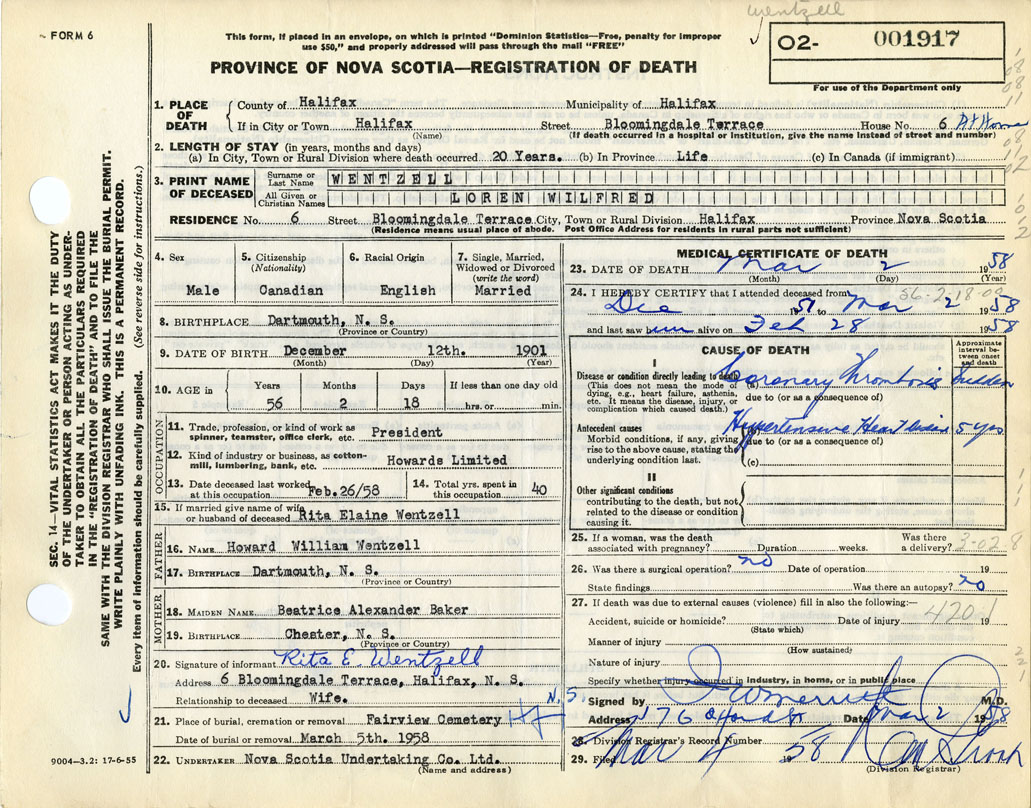 wentzell
~ FORM 6
This form, if placed in an envelope, on which is printed "Dominion Statistics—Free, penalty for improper
use $50," and properly addressed will pass through the mail "FREE"
PROVINCE OF NOVA SCOTIA—REGISTRATION OF DEATH
02- 001917
For use of the Department only
SEC. 14—VITAL STATISTICS ACT MAKES IT THE DUTY
OF THE UNDERTAKER OR PERSON ACTING AS UNDER-
TAKER TO OBTAIN ALL THE PARTICULARS REQUIRED
IN THE "REGISTRATION OF DEATH" AND TO FILE THE
SAME WITH THE DIVISION REGISTRAR WHO SHALL ISSUE THE BURIAL PERMIT.
WRITE PLAINLY WITH UNFADING INK. THIS IS A PERMANENT RECORD.
Every item of information should be carefully supplied. (See reverse side for instructions.)
1. PLACE OF DEATH
County of Halifax Municipality of Halifax
If in City or Town Halifax Street Bloomingdale Terrace House No. 6 At Home
(Name) (If death occurred in a hospital or institution, give the name instead of street and number)
2. LENGTH OF STAY (in years, months and days)
(a) In City, Town or Rural Division where death occurred 20 Years. (b) In Province Life (c) In Canada (if immigrant)
3. PRINT NAME OF DECEASED
Surname or Last Name WENTZELL
All Given or Christian Names LOREN WILFRED
RESIDENCE No. 6 Street Bloomingdale Terrace City, Town or Rural Division Halifax Province Nova Scotia
(Residence means usual place of abode. Post Office Address for residents in rural parts not sufficient)
4. Sex Male
5. Citizenship (Nationality) Canadian
6. Racial Origin English
7. Single, Married, Widowed or Divorced (write the word) Married
8. BIRTHPLACE Dartmouth, N. S.
(Province or Country)
9. DATE OF BIRTH December 12th. 1901
(Month) (Day) (Year)
10. AGE in Years Months Days If less than one day old
56 2 18 hrs. or min.
OCCUPATION
11. Trade, profession, or kind of work as spinner, teamster, office clerk, etc. President
12. Kind of industry or business, as cotton-mill, lumbering, bank, etc. Howards Limited
13. Date deceased last worked at this occupation Feb.26/58
14. Total yrs. spent in this occupation 40
15. If married give name of wife or husband of deceased Rita Elaine Wentzell
FATHER
16. NAME Howard William Wentzell
17. BIRTHPLACE Dartmouth, N. S.
(Province or Country)
MOTHER
18. MAIDEN NAME Beatrice Alexander Baker
19. BIRTHPLACE Chester, N. S.
(Province or Country)
20. Signature of informant Rita E. Wentzell
Address 6 Bloomingdale Terrace, Halifax, N. S.
Relationship to deceased Wife. N.S.
21. Place of burial, cremation or removal Fairview Cemetery
Date of burial or removal March 5th. 1958
22. UNDERTAKER Nova Scotia Undertaking Co. Ltd.
(Name and address)
9004—3.2: 17-6-55
MEDICAL CERTIFICATE OF DEATH
23. DATE OF DEATH Mar 2 1958
(Month) (Day) (Year)
56-2-18-00
24. I HEREBY CERTIFY that I attended deceased from
Dec 1957 to Mar 2 1958
and last saw him alive on Feb 28 1958
CAUSE OF DEATH
Approximate interval between onset and death
I
Disease or condition directly leading to death (a) Coronary Thrombosis Sudden
(This does not mean the mode of dying, e.g., heart failure, asthenia, etc. It means the disease, injury, or complication which caused death.)
due to (or as a consequence of)
Antecedent causes (b) Hypertensive Heart disease 5 yrs
Morbid conditions, if any, giving rise to the above cause, stating the underlying condition last.
due to (or as a consequence of)
(c)
II
Other significant conditions
contributing to the death, but not related to the disease or condition causing it.
25. If a woman, was the death associated with pregnancy? Duration weeks. Was there a delivery? 3-028
26. Was there a surgical operation? no Date of operation 19
State findings Was there an autopsy? no
27. If death was due to external causes (violence) fill in also the following:—
4201
Accident, suicide or homicide? Date of injury 19
(State which)
Manner of injury
(How sustained)
Nature of injury
Specify whether injury occurred in industry, in home, or in public place
Signed by M.D.
Address 176 Date Mar 2 1958
28. Division Registrar's Record Number
29. Filed Mar 4 1958
(Division Registrar)